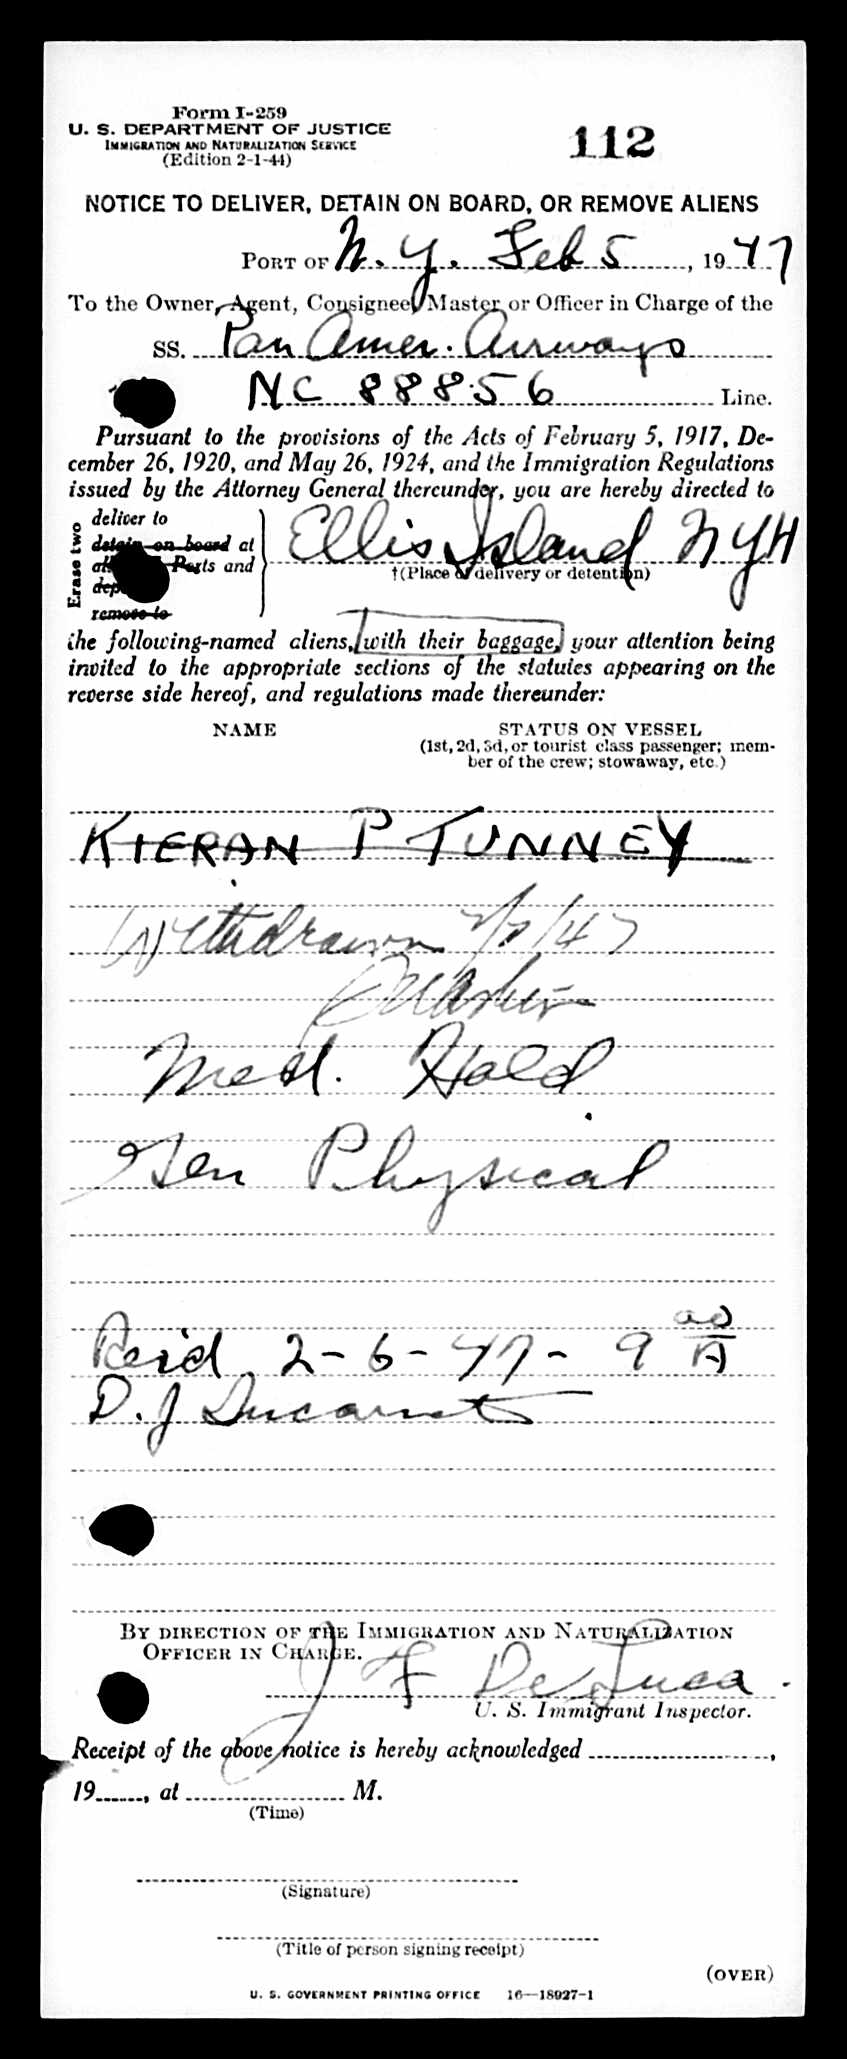 Form I-259
U. S. DEPARTMENT OF JUSTICE
IMMIGRATION AND NATURALIZATION SERVICE
(Edition 2-1-44)
112
NOTICE TO DELIVER, DETAIN ON BOARD, OR REMOVE ALIENS
PORT OF N. Y. Feb 5, 1947
To the Owner, Agent, Consignee, Master or Officer in Charge of the
SS. Pan Amer. Airways
NC 88856 Line.
Pursuant to the provisions of the Acts of February 5, 1917, De-
cember 26, 1920, and May 26, 1924, and the Immigration Regulations
issued by the Attorney General thereunder, you are hereby directed to
Erase two
deliver to
detain on board at
all Ports and
remove to
Ellis Island NYH
†(Place of delivery or detention)
the following-named aliens, with their baggage, your attention being
invited to the appropriate sections of the statutes appearing on the
reverse side hereof, and regulations made thereunder:
NAME
STATUS ON VESSEL
(1st, 2d, 3d, or tourist class passenger; mem-
ber of the crew; stowaway, etc.)
KIERAN P TUNNEY
Withdrawn 2/7/47
Med. Hold
Gen Physical
Rec'd 2-6-47- 9 00 A
D. J
BY DIRECTION OF THE IMMIGRATION AND NATURALIZATION
OFFICER IN CHARGE.
J F De Luca
U. S. Immigrant Inspector.
Receipt of the above notice is hereby acknowledged ,
19 , at M.
(Time)
(Signature)
(Title of person signing receipt)
(OVER)
U. S. GOVERNMENT PRINTING OFFICE 16—18927-1